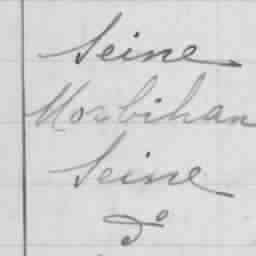 Seine
Morbihan
Seine
d°